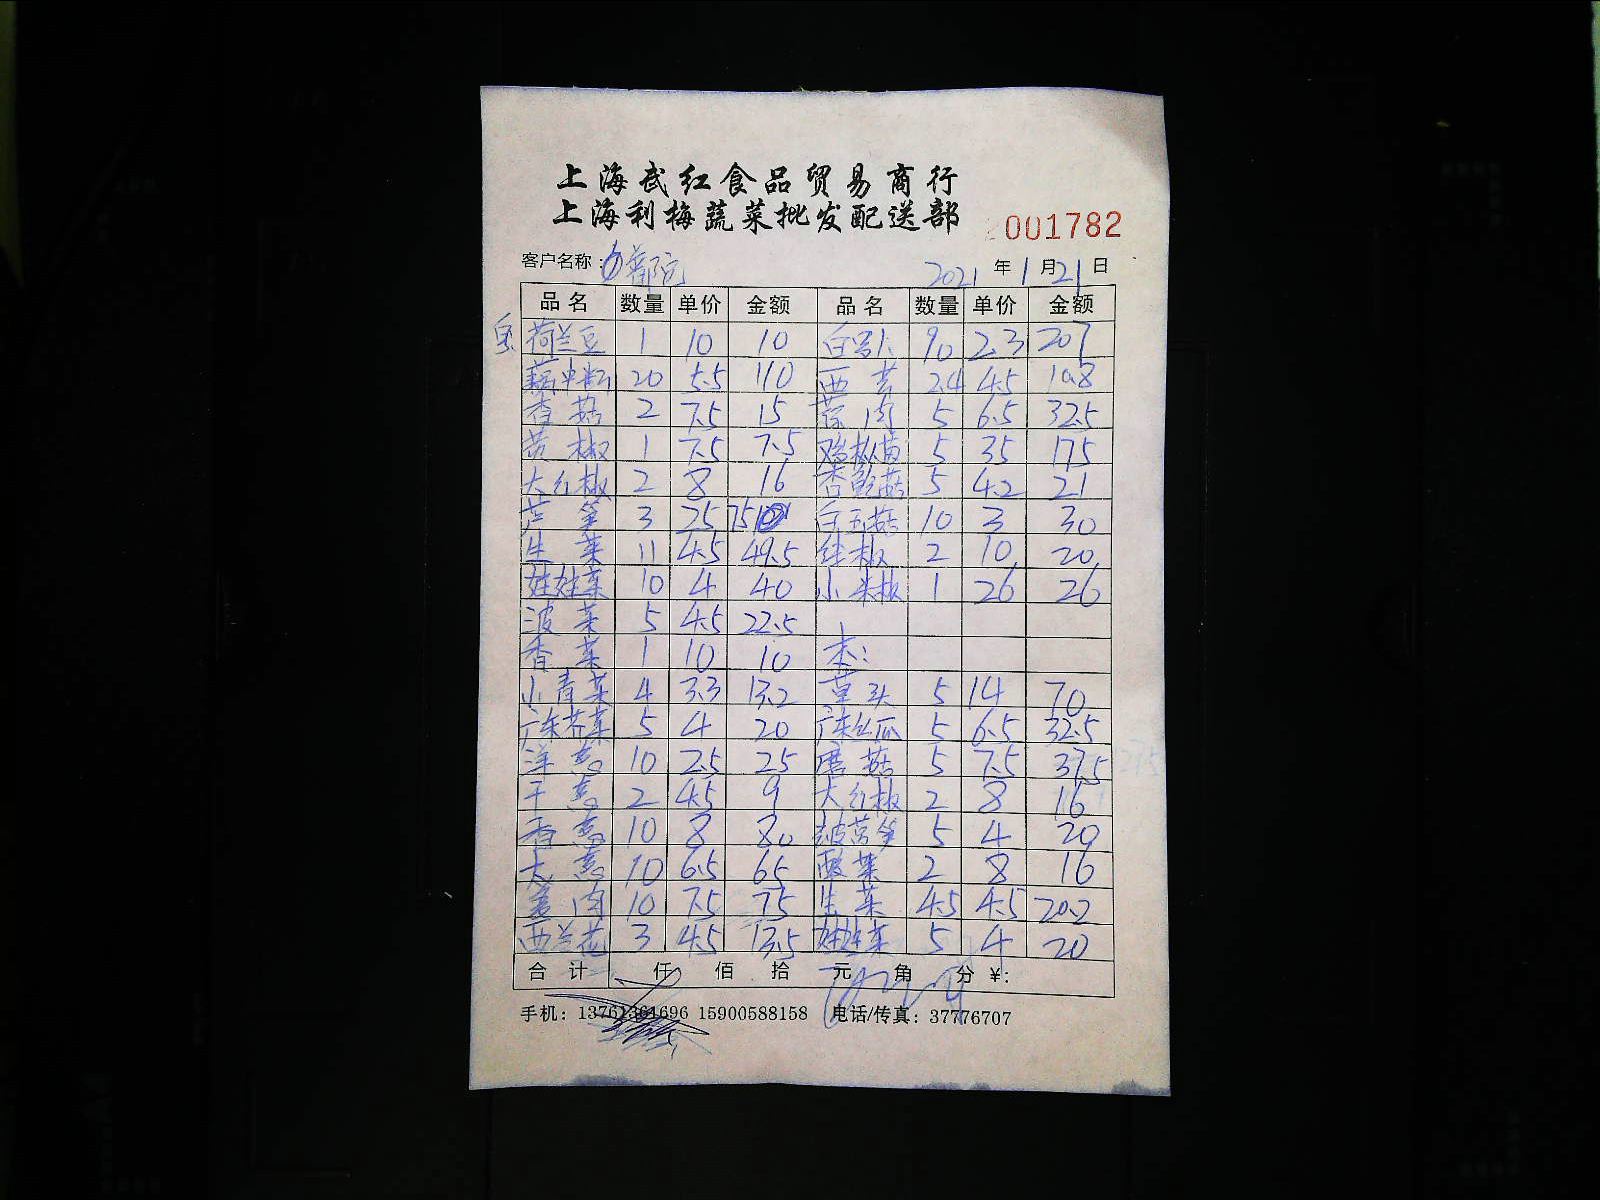 上海武红食品贸易商行
上海利梅蔬菜批发配送部
001782
客户名称: 2021年1月21日
品名 数量 单价 金额 品名 数量 单价 金额
荷兰豆 1 10 10 白萝卜 90 2.3 207
藕 20 5.5 110 西芹 2.4 4.5 10.8
香菇 2 7.5 15 蒜肉 5 6.5 32.5
黄椒 1 7.5 7.5 鸡枞菌 5 35 175
大红椒 2 8 16 杏鲍菇 5 4.2 21
芦笋 3 25 75 白玉菇 10 3 30
生菜 11 4.5 49.5 线椒 2 10 20
娃娃菜 10 4 40 小米椒 1 26 26
菠菜 5 4.5 22.5
香菜 1 10 10 本:
小青菜 4 3.3 13.2 草头 5 14 70
广东芥菜 5 4 20 广东丝瓜 5 6.5 32.5
洋葱 10 2.5 25 磨菇 5 7.5 37.5
干葱 2 4.5 9 大红椒 2 8 16
香葱 10 8 80 莴笋 5 4 20
大葱 10 6.5 65 酸菜 2 8 16
姜肉 10 7.5 75 生菜 4.5 4.5 20.2
西兰花 3 4.5 13.5 娃娃菜 5 4 20
合计 仟 佰 拾 元 角 分 ¥:
手机: 13761361696 15900588158 电话/传真: 37776707